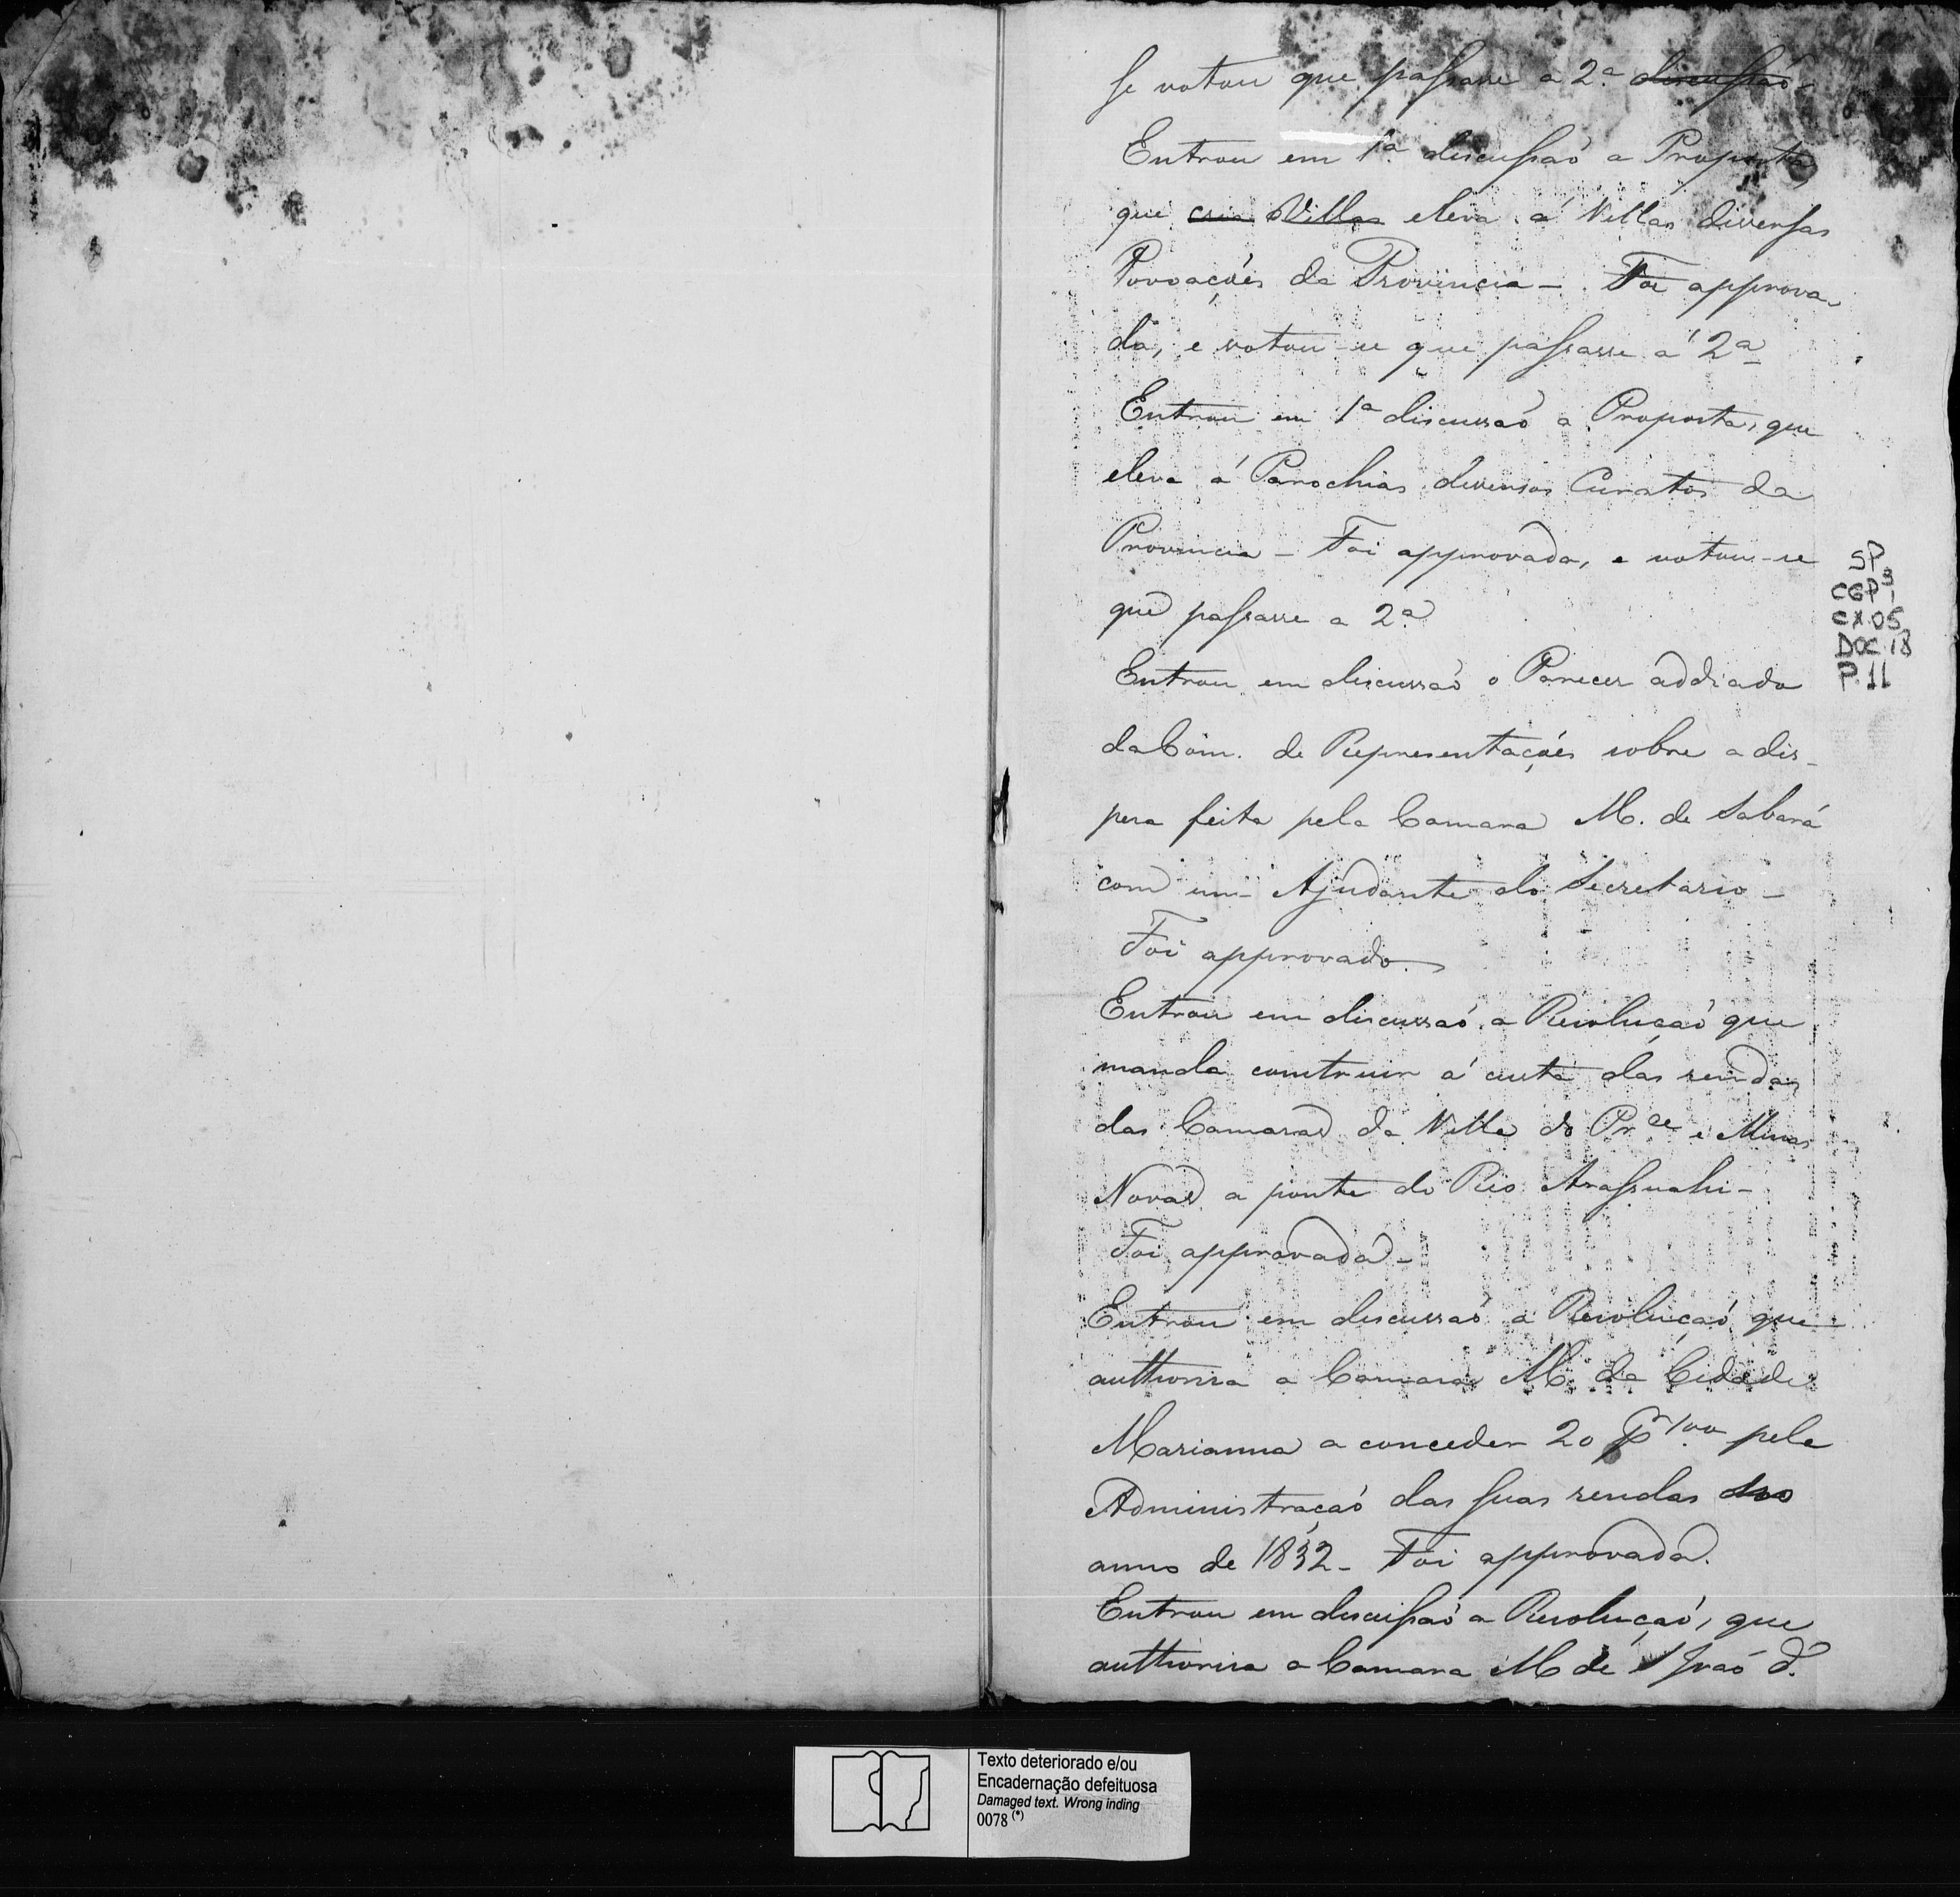 se votou que passasse a 2.ª discussaõ
Entrou em 1.ª discussaõ a Proposta,
que cria Villas eleva á Villas diversas
Povoaçoẽs da Provincia - Foi approva-
da, e votou-se que passasse á 2ª
Entrou em 1ª discussaõ a Proposta, que
eleva á Parochias diversos Curatos da
Provincia - Foi approvada, e votou-se
que passasse a 2.ª
Entrou em discussaõ o Parecer addiado
da Com. de Representaçoẽs sobre a dis-
peza feita pela Camara M. de Sabará
com um Ajudante do Secretario -
Foi approvado.
Entrou em discussaõ a Resoluçaõ que
manda construir á custa das rendas
das Camaras da Villa do Pr.ce e Minas
Novas a ponte do Rio Arassuahi -
Foi approvada -
Entrou em discussaõ a Resoluçaõ que
authorisa a Camara M. da Cidade
Marianna a conceder 20 p.r 100 pela
Administraçaõ das suas rendas do
anno de 1832 - Foi approvada.
Entrou em discussaõ a Resoluçaõ, que
authorisa a Camara M de S Joaõ d.
SP
CGP3,
CX.05,
DOC.18
P.11
Texto deteriorado e/ou
Encadernação defeituosa
Damaged text. Wrong inding
0078 (*)